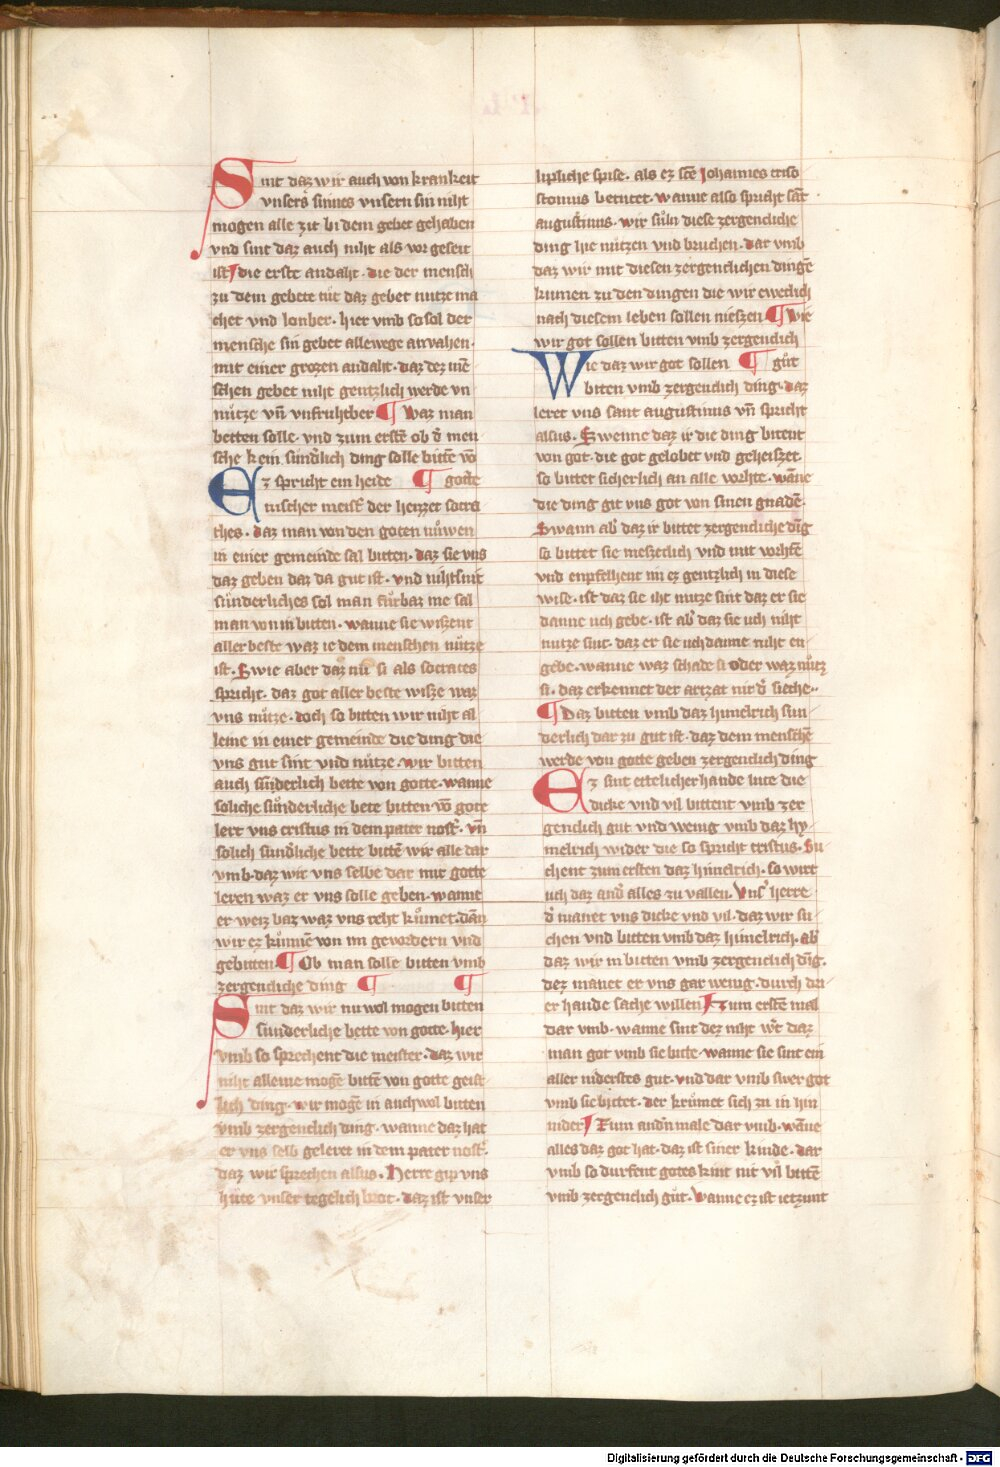 Sint daz wir auch von krankeit
vnsers sinnes vnsern sin niht
mogen alle zit bi dem gebet gehaben
vnd sint daz auch niht als vor geseit
ist die erste andaht · die der mensch
zu dem gebete tuͦt daz gebet nutze ma
chet vnd lonber · hier vmb so sol der
mensche sin gebet allewege anvahen ·
mit einer grozen andaht · daz dez mē
schen gebet niht gentzlich werde vn
nuͤtze vn̄ vnfruhtber ¶ Waz man
betten solle · vnd zum erstē ob d̓ men
sche kein sund̓lich ding solle bittē vō
Ez spricht ein heide ¶ gotte
nischer meist̓ der heizzet socra
thes · daz man von den goten nuͤwen
in einer gemeinde sal bitten · daz sie vns
daz geben daz da gut ist · vnd nihtsnit
suͤnderliches sol man fuͤrbaz me sal
man von in bitten · wanne sie wiszent
aller beste waz ie dem menschen nuͤtze
ist · Swie aber daz nuͦ si als socrates
spricht · daz got aller beste wisze waz
vns nuͤtze · doch so bitten wir niht al
leine in einer gemeinde die ding die
vns gut sint vnd nuͤtze · wir bitten
auch suͤnderlich bette von gotte · wanne
soliche suͤnderliche bete bitten vō gote
lert vns cristus in dem pater nost̓ · vn̄
solich sund̓liche bette bittē wir alle dar
vmb · daz wir vns selbe dar mit gotte
leren waz er vns solle geben · wanne
er weiz baz waz vns reht kuͦmet · dan̄
wir ez kuͤnnē von im gevordern vnd
gebitten ¶ Ob man solle bitten vmb
zergencliche ding ¶ ¶
Sint daz wir nu wol mogen bitten
suͤnderliche bette von gotte · hier
vmb so sprechent die meister · daz wir
niht alleine mogē bittē von gotte geist
lich ding · wir mogē in auch wol bitten
vmb zergenclich ding · wanne daz hat
er vns selb geleret in dem pater nost̓ ·
daz wir sprechen alsus · Herre gip vns
huͤte vnser tegelich brot · daz ist vnser
lipliche spise · als ez sc̄e Johannes criso
stomus betutet · wanne also spricht sāt
augustinus · wir suͤln diese zergencliche
ding hie nutzen vnd bruchen · dar vmb
daz wir mit diesen zergenclichen dingē
kumen zu den dingen die wir eweclich
nach diesem leben sollen nieszen ¶ Wie
wir got sollen bitten vmb zergenclich
Wie daz wir got sollen ¶ guͦt
bitten vmb zergenclich ding · daz
leret vns sant augustinus vn̄ spricht
alsus · Swenne daz ir die ding bitent
von got · die got gelobet vnd geheiszet ·
so bittet sicherlich an alle vorhte · wāne
die ding git vns got von sinen gnadē ·
Swann ab̓ daz ir bittet zergencliche dīg
so bittet sie meszeclich vnd mit vorhtē
vnd enpfelhent im ez gentzlich in diese
wise · ist daz sie iht nutze sint daz er sie
danne uch gebe · ist ab̓ daz sie uch niht
nutze sint · daz er sie uch danne niht en
gebe · wanne waz schade si oder waz nuͤtz
si · daz erkennet der artzat nit d̓ sieche ·
¶ Daz bitten vmb daz himelrich sun
derlich dar zu gut ist · daz dem menschē
werde von gotte geben zergenclich ding
Ez sint ettelicher hande lute die
dicke vnd vil bittent vmb zer
genclich gut vnd wenig vmb daz hy
melrich wider die so spricht cristus · Su
chent zum ersten daz himelrich · so wirt
uch daz and̓ alles zu vallen · Vns̓ herre
d̓ manet vns dicke vnd vil · daz wir su
chen vnd bitten vmb daz himelrich · ab̓
daz wir in bitten vmb zergenclich dīg ·
dez manet er vns gar wenig · durch dri
er hande sache willen Zum erstē mal
dar vmb · wanne sint dez niht w̓t daz
man got vmb sie bitte · wanne sie sint ein
aller niderstes gut · vnd dar vmb swer got
vmb sie bittet · der kruͤmet sich zu in hin
nider Zum and̓n male dar vmb · wāne
alles daz got hat · daz ist siner kinde · dar
vmb so durfent gotes kint nit vil bittē
vmb zergenclich guͦt · Wanne ez ist ietzunt
Digitalisierung gefördert durch die Deutsche Forschungsgemeinschaft - DFG